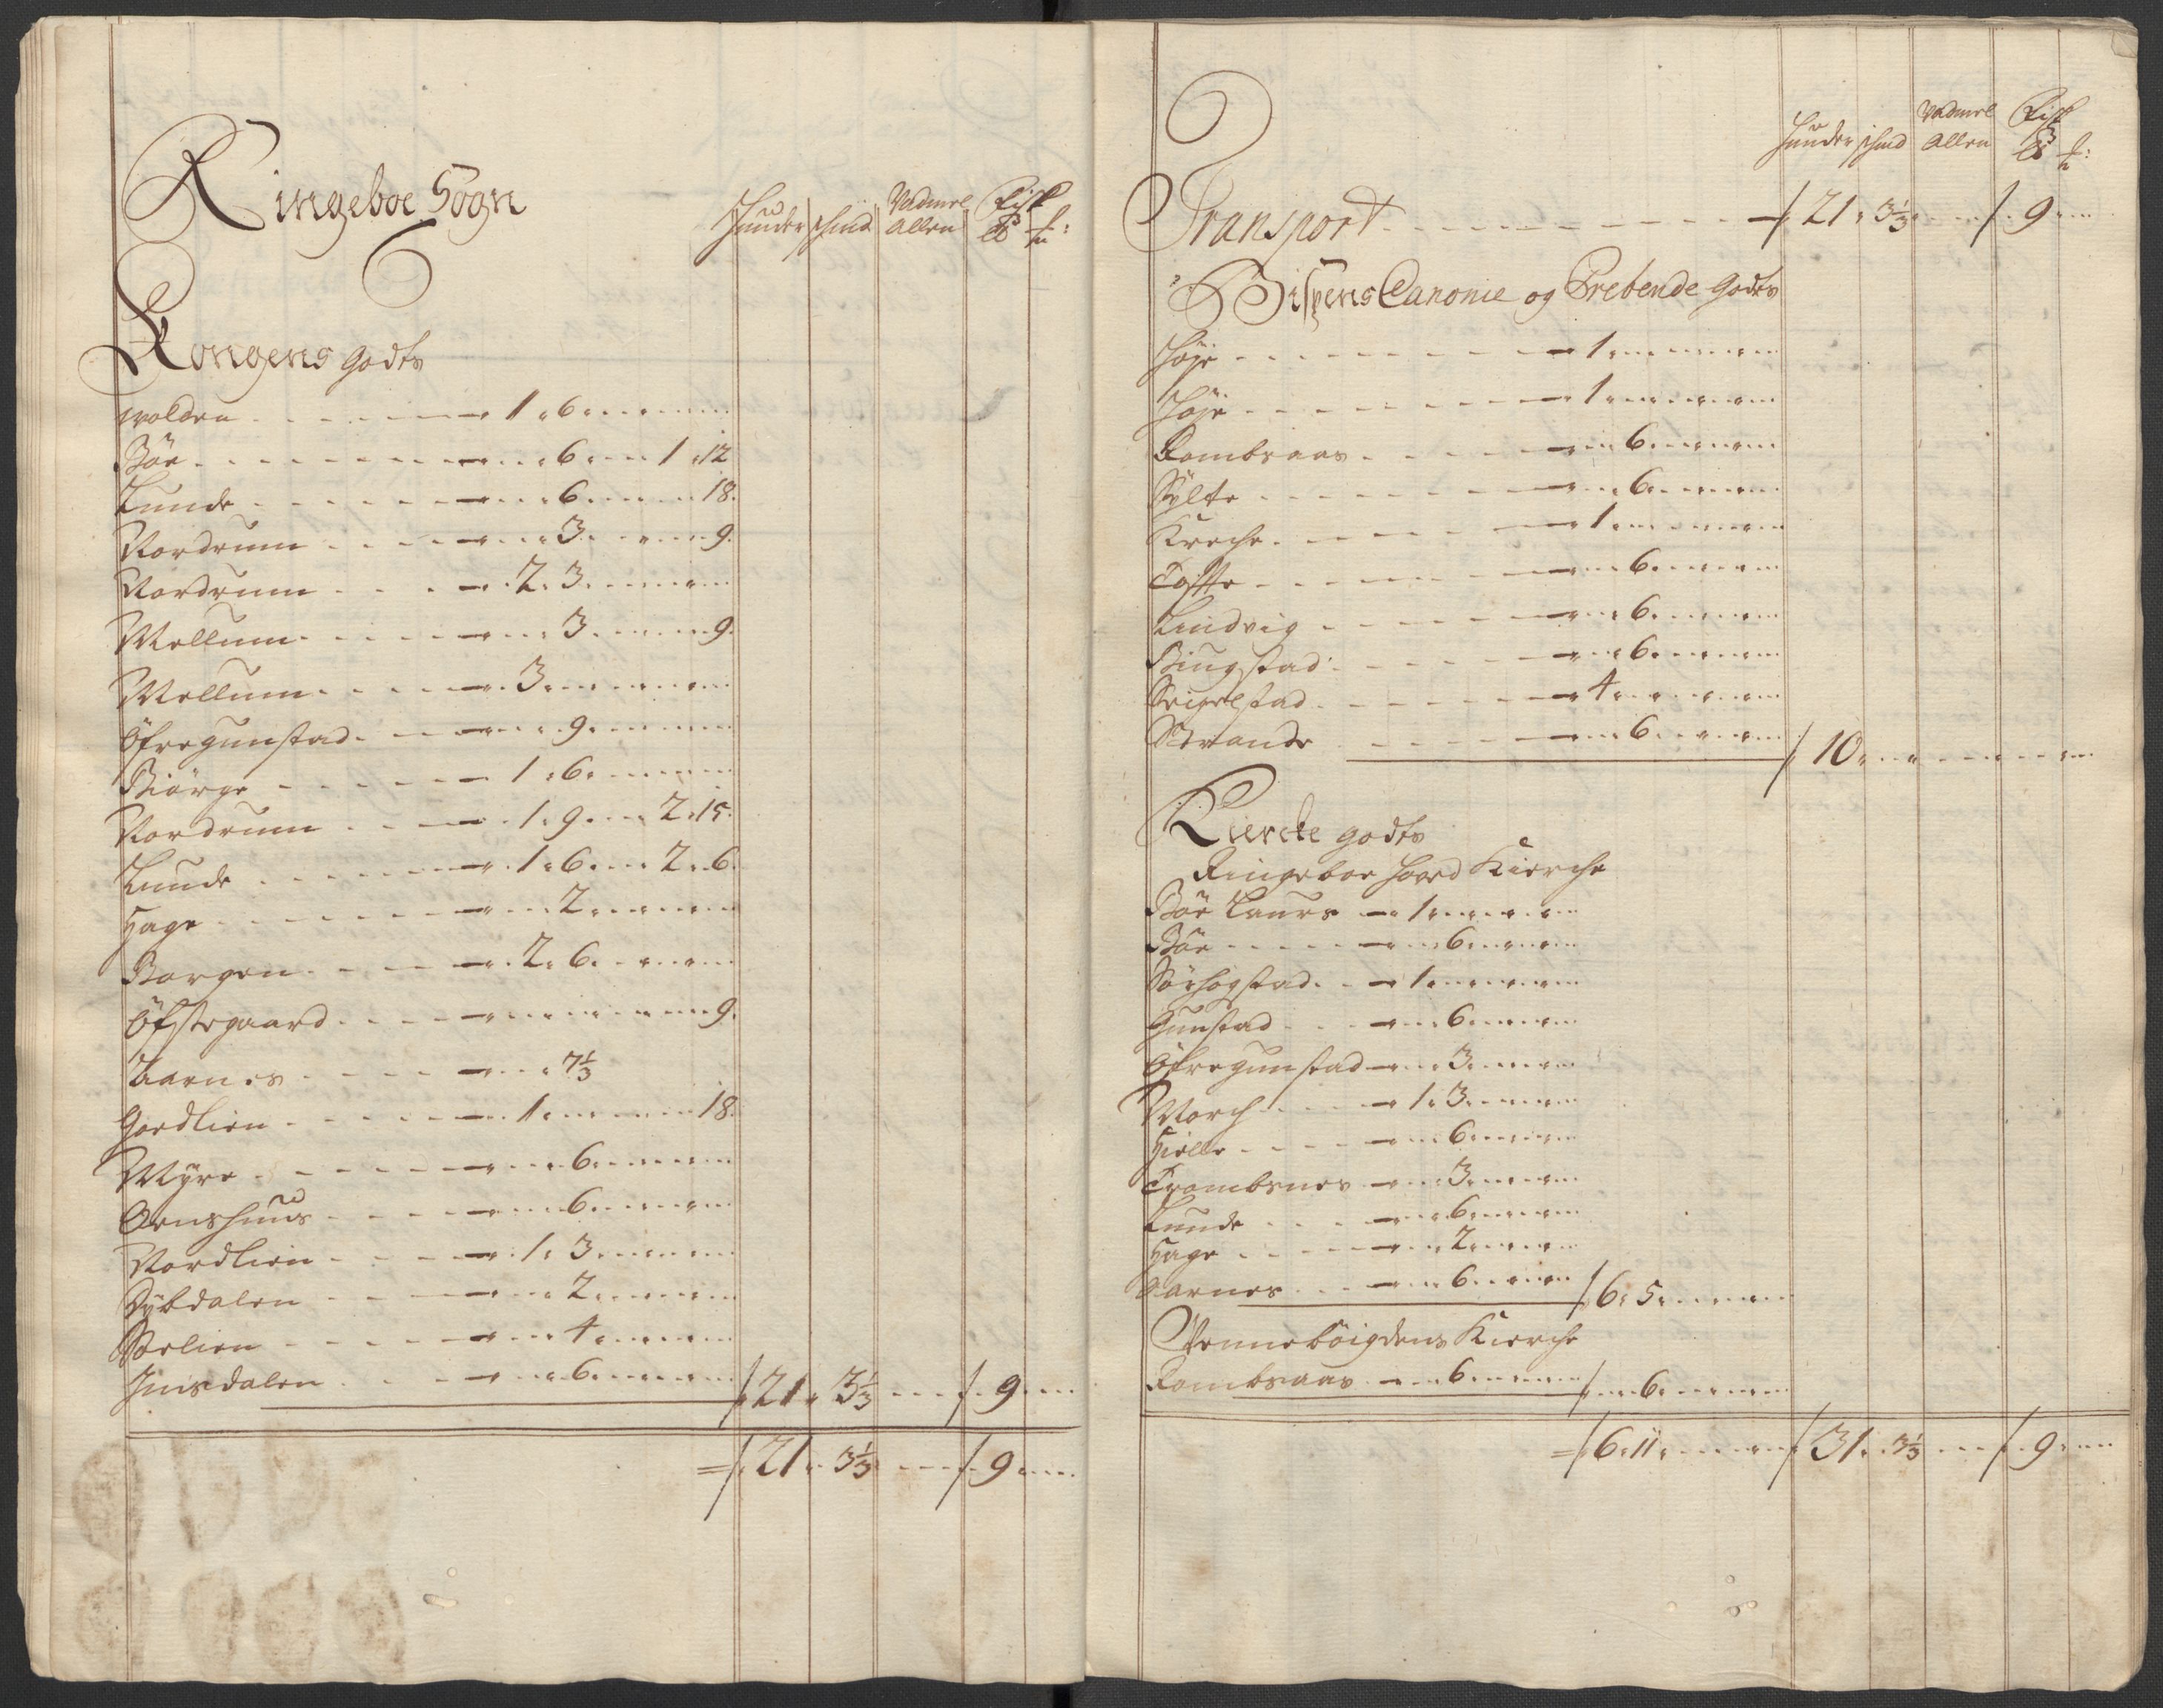 Ringeboe Sogn
Huuder Skind Vadmel Allen Fisk
Kongens Godts
Wolden 1 6
Böe 6 1 12
Lunde 6 18
Nordrum 3 9
Nordrum 2 3
Mellum 3 9
Mellum 3
Öfregunstad 9
Biörge 1 6
Nordrum 1 9 2 15
Lunde 1 6 2 6
Hage 2
Borgen 2 6
Öfstegaard 9
Aarnes 7 1/3
Gordlien 1 18
Myre 6
Ornshuus 6
Nordlien 1 3
Dybdalen 2
Solien 4
Imsdalen 6 21 3 1/3 9
21 3 1/3 9
Huuder Skind Vadmel Allen Fisk
Transport 21 3 1/3 9
Bispens Canonie og Prebende Godts
Höje 1
Höje 1
Rombsaas 6
Sylte 6
Kreche 1
Toffte 6
Lindvig 6
Ringstad 6
Seigelstad 4
Strande 6 10
Kiercke Godts
Ringeboe Hoved Kierche
Böe Laurs 1
Böe 6
Sörhogstad 1
Gunstad 6
Öfregunstad 3
Morch 1 3
Hielle 6
Trombsnes 3
Lunde 6
Hage 2
Aarnes 6 6 5
Venneböigdens Kierche
Rombsaas 6 6
6 11 31 3 1/3 9